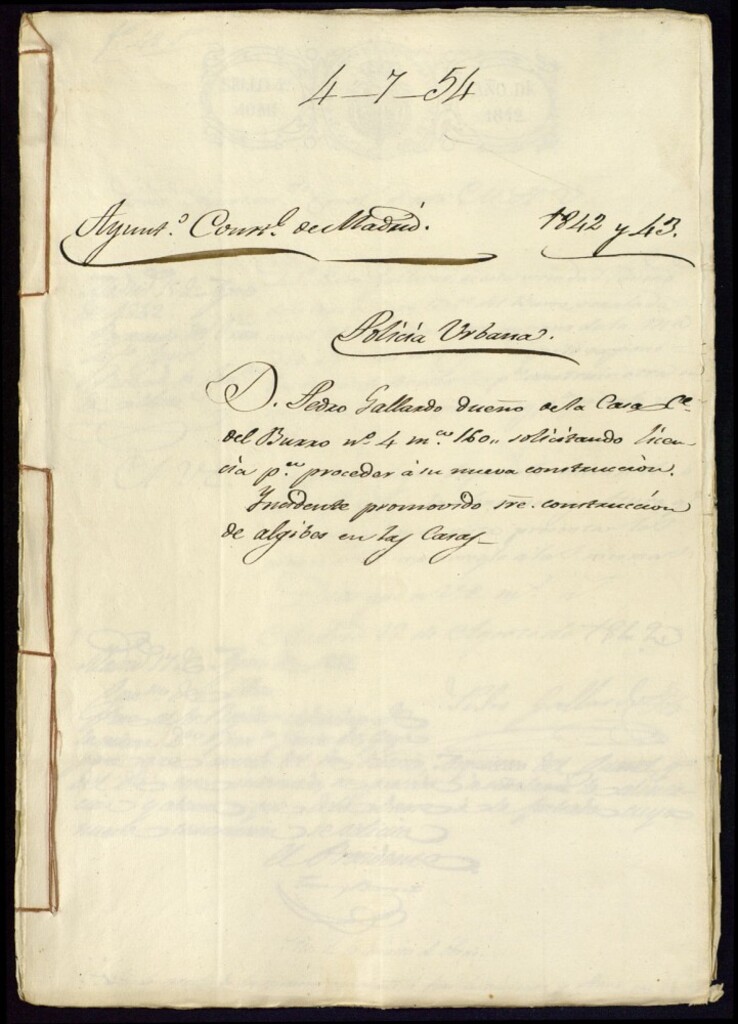 4-7-54
Ayunt.º Const.l de Madrid. 1842 y 43.
Policia Urbana.
D. Pedro Gallardo dueño de la Casa C.e
del Burro nº 4 m.na 160,, solicitando licen
cia p.ra proceder á su nueva construccion.
Incidente promovido sre. construccion
de algibes en las Casas